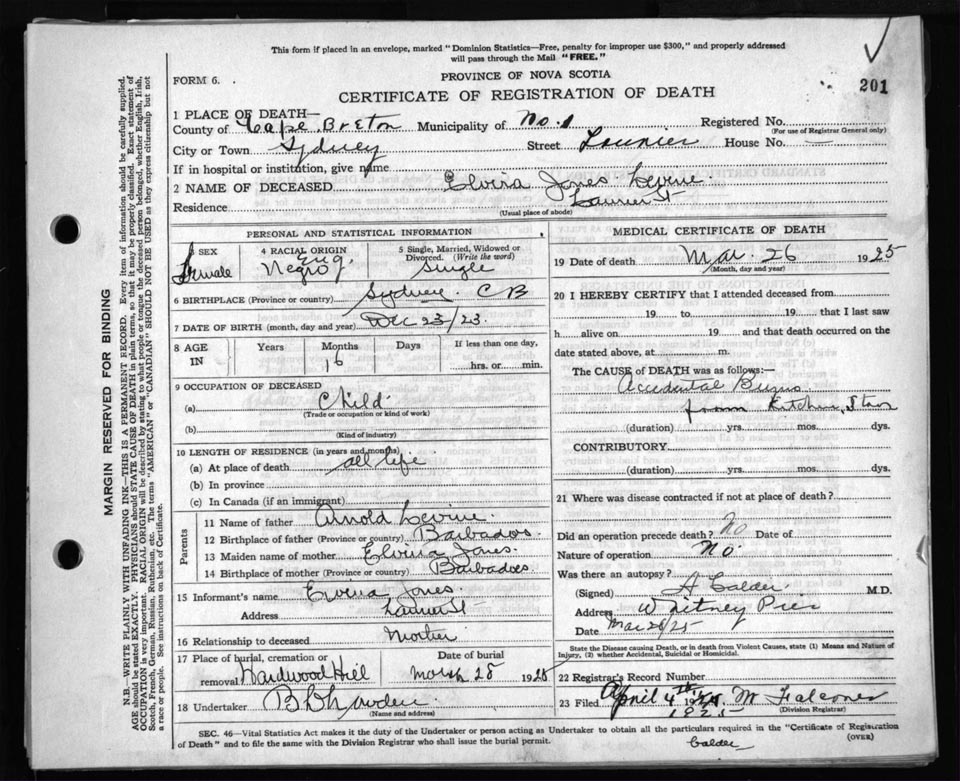 This form if placed in an envelope, marked "Dominion Statistics—Free, penalty for improper use $300," and properly addressed
will pass through the Mail "FREE."
FORM 6.
PROVINCE OF NOVA SCOTIA
201
CERTIFICATE OF REGISTRATION OF DEATH
1 PLACE OF DEATH—
County of Cape Breton Municipality of No. 1 Registered No.
(For use of Registrar General only)
City or Town Sydney Street Laurier House No. —
If in hospital or institution, give name
2 NAME OF DECEASED Elvira Jones Levine
Residence Laurier St
(Usual place of abode)
PERSONAL AND STATISTICAL INFORMATION
3 SEX Female
4 RACIAL ORIGIN Eng. Negro
5 Single, Married, Widowed or Divorced. (Write the word) Single
6 BIRTHPLACE (Province or country) Sydney C B
7 DATE OF BIRTH (month, day and year) Dec 23/23.
8 AGE IN Years Months 16 Days If less than one day, hrs. or min.
9 OCCUPATION OF DECEASED
(a) Child
(Trade or occupation or kind of work)
(b)
(Kind of industry)
10 LENGTH OF RESIDENCE (in years and months)
(a) At place of death all life
(b) In province
(c) In Canada (if an immigrant)
Parents
11 Name of father Arnold Levine
12 Birthplace of father (Province or country) Barbados
13 Maiden name of mother Elvira Jones.
14 Birthplace of mother (Province or country) Barbadoes.
15 Informant's name Elvira Jones
Address Laurier St
16 Relationship to deceased Mother
17 Place of burial, cremation or removal Hardwood Hill
Date of burial March 28 1925
18 Undertaker
(Name and address)
MEDICAL CERTIFICATE OF DEATH
19 Date of death Mar. 26 1925
(Month, day and year)
20 I HEREBY CERTIFY that I attended deceased from
19 to 19 that I last saw
h alive on 19 and that death occurred on the
date stated above, at m.
The CAUSE of DEATH was as follows:—
Accidental Burns
from Kitchen
(duration) yrs. mos. dys.
CONTRIBUTORY
(duration) yrs. mos. dys.
21 Where was disease contracted if not at place of death?
Did an operation precede death? No Date of
Nature of operation No.
Was there an autopsy?
(Signed) A Calder M.D.
Address Whitney Pier
Date Mar 28/25
State the Disease causing Death, or in death from Violent Causes, state (1) Means and Nature of
Injury, (2) whether Accidental, Suicidal or Homicidal.
22 Registrar's Record Number
23 Filed April 4th 1925 M Falconer
1925
(Division Registrar)
SEC. 46—Vital Statistics Act makes it the duty of the Undertaker or person acting as Undertaker to obtain all the particulars required in the "Certificate of Registration
of Death" and to file the same with the Division Registrar who shall issue the burial permit.
(OVER)
Calder
MARGIN RESERVED FOR BINDING
N.B.—WRITE PLAINLY WITH UNFADING INK—THIS IS A PERMANENT RECORD. Every item of information should be carefully supplied.
AGE should be stated EXACTLY. PHYSICIANS should STATE CAUSE OF DEATH in plain terms, so that it may be properly classified. Exact statement of
OCCUPATION is very important. RACIAL ORIGIN will be described by stating to what people or tongue the deceased person belonged, whether English, Irish,
Scotch, French, German, Russian, Ruthenian, etc. The terms "AMERICAN" or "CANADIAN" SHOULD NOT BE USED as they express citizenship but not
a race or people. See instructions on back of Certificate.